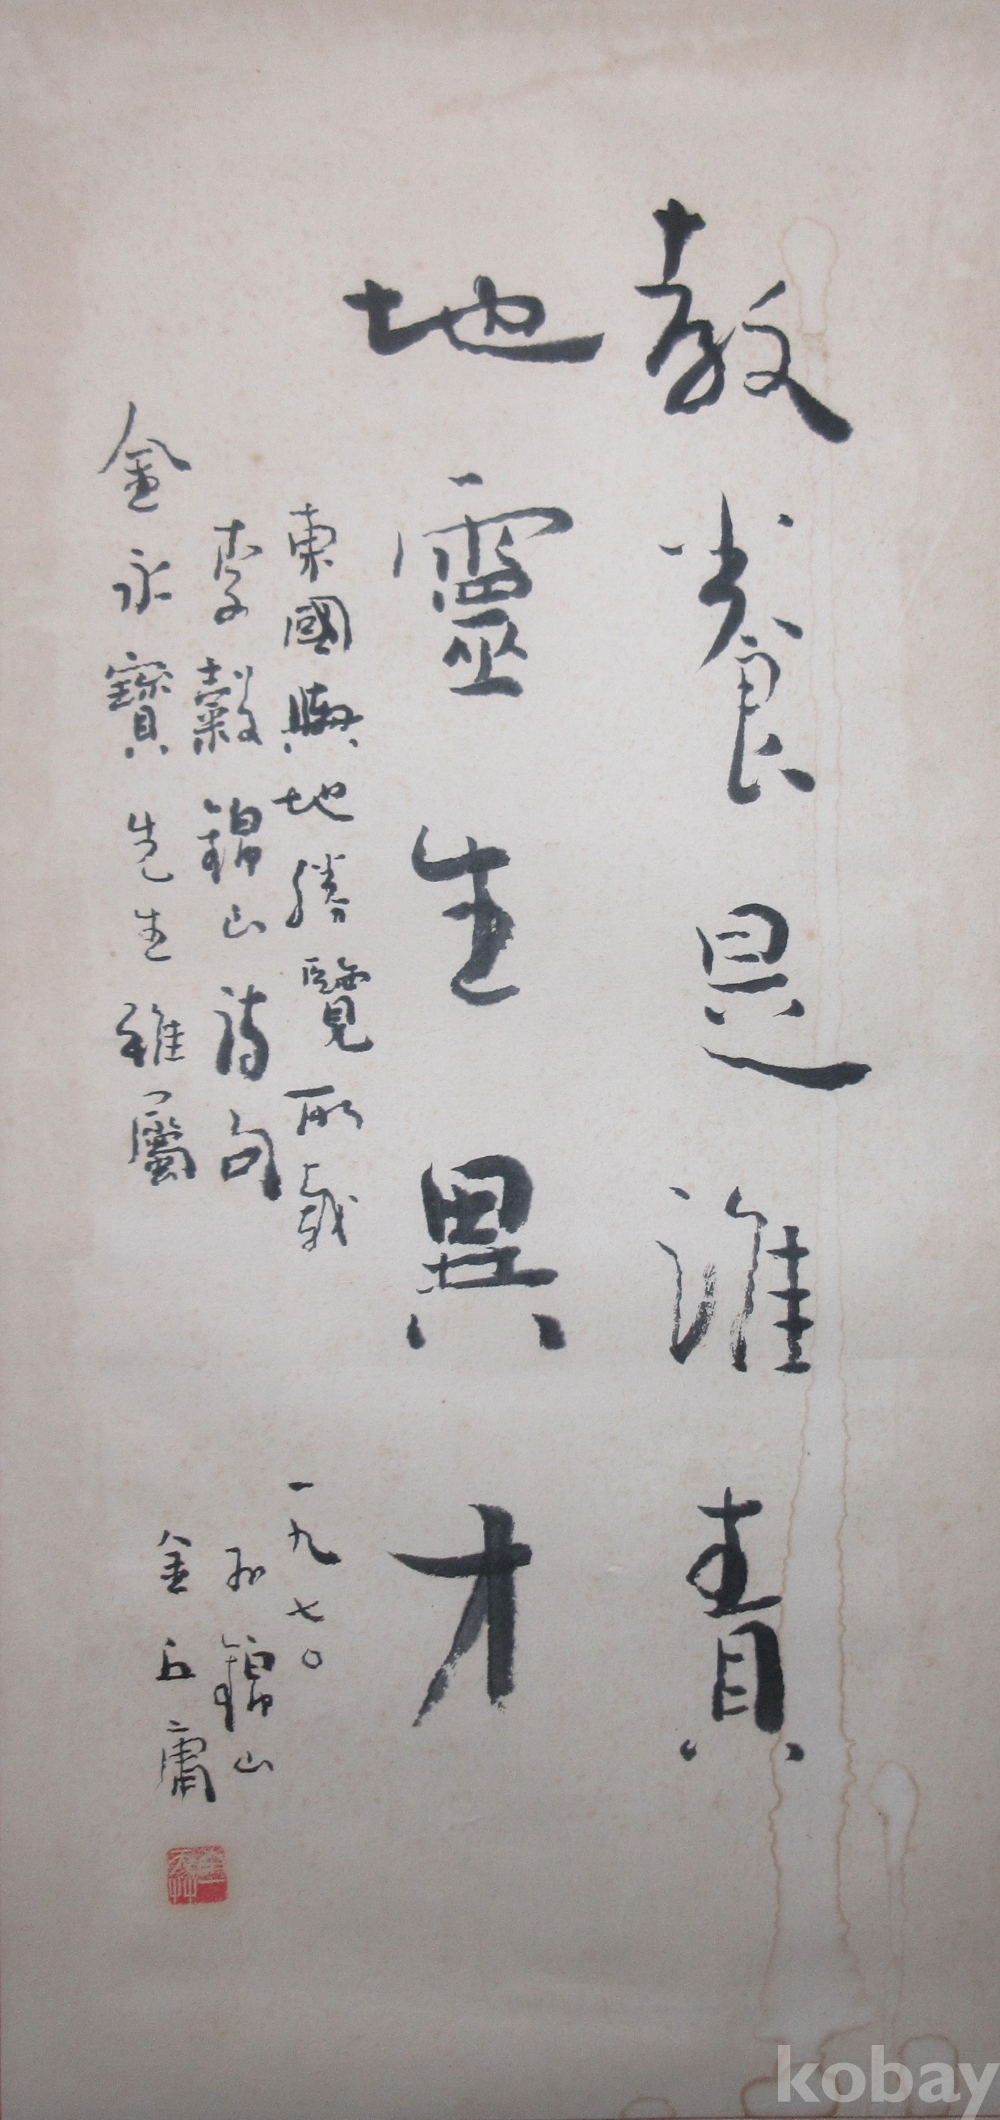 教養是誰責
地靈生異才
東國輿地勝覽所載
李穀錦山詩句
金永寶先生雅屬
一九七〇
於錦山
金丘庸
kobay